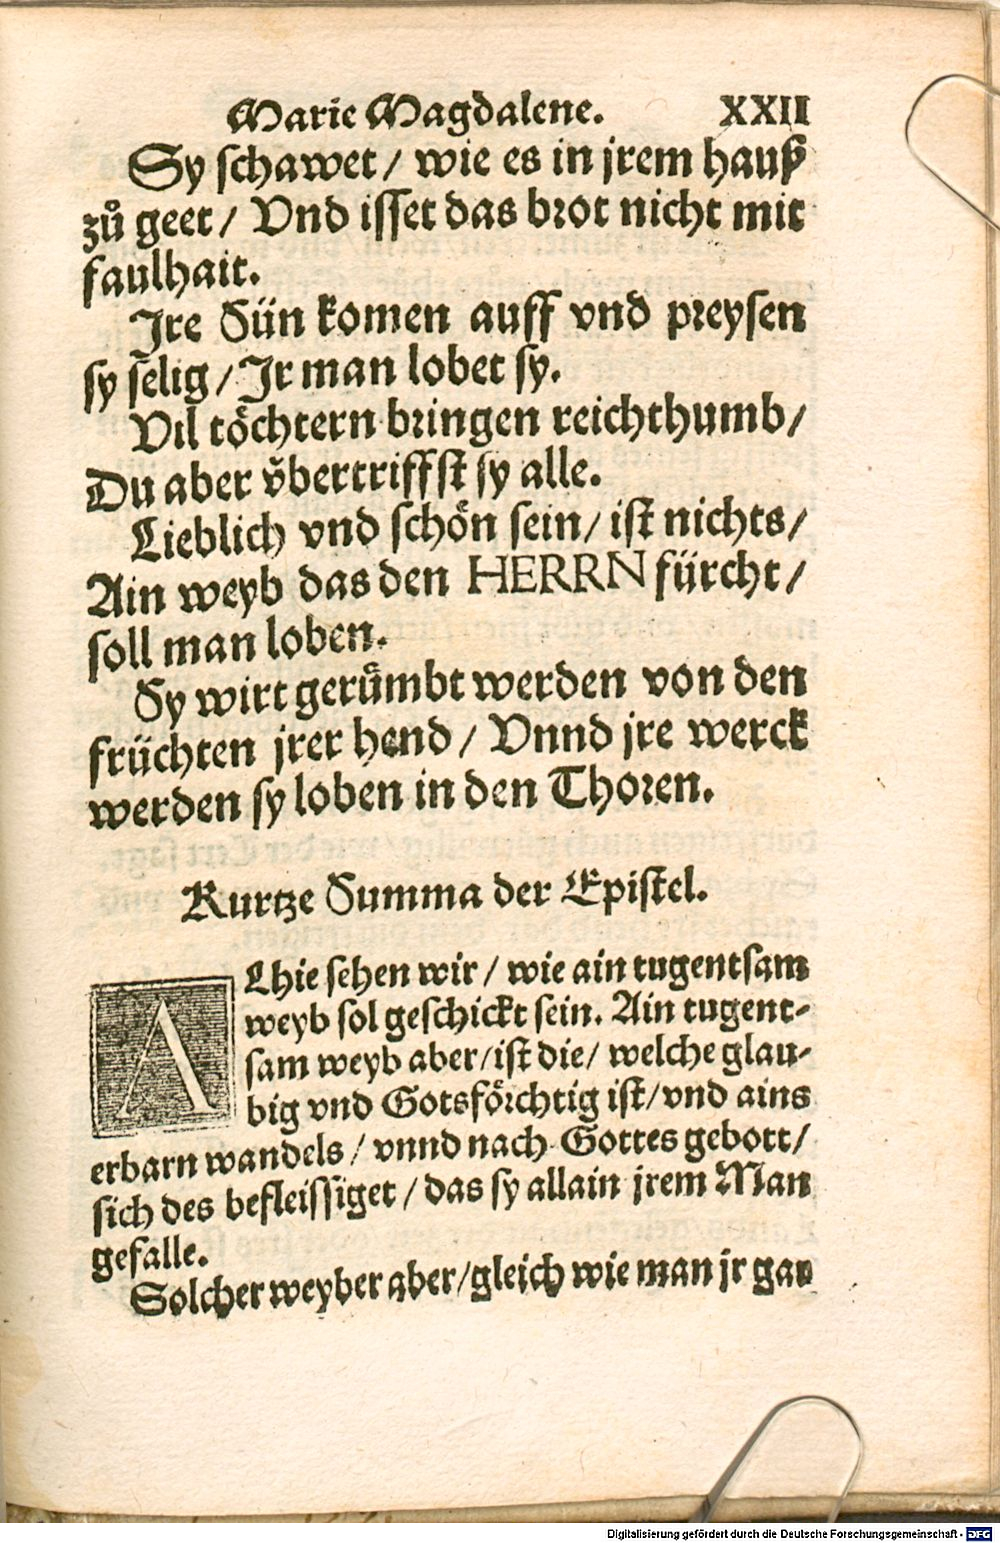 Marie Magdalene. XXII
Sy schawet / wie es in jrem hauß
zů geet / Vnd isset das brot nicht mit
faulhait.
Jre Sün komen auff vnd preysen
sy selig / Jr man lobet sy.
Vil töchtern bringen reichthumb /
Du aber v̈bertriffst sy alle.
Lieblich vnd schön sein / ist nichts /
Ain weyb das den HERRN fürcht /
soll man loben.
Sy wirt gerümbt werden von den
früchten jrer hend / Vnnd jre werck
werden sy loben in den Thoren.
Kurtze Summa der Epistel.
ALhie sehen wir / wie ain tugentsam
weyb sol geschickt sein. Ain tugent-
sam weyb aber / ist die / welche glau-
big vnd Gotsförchtig ist / vnd ains
erbarn wandels / vnnd nach Gottes gebott /
sich des befleissiget / das sy allain jrem Man
gefalle.
Solcher weyber aber / gleich wie man jr gar
Digitalisierung gefördert durch die Deutsche Forschungsgemeinschaft - DFG